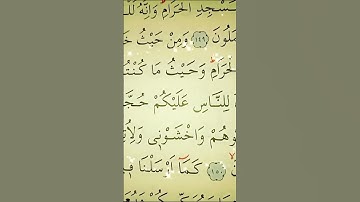 سْجِدِ الْحَرَامِ وَاِنَّهُ لَل
مَلُونَ ﴿١٤٩﴾ وَمِنْ حَيْثُ خَ
لْحَرَامِ وَحَيْثُ مَا كُنْتُ
لِلنَّاسِ عَلَيْكُمْ حُجَّ
وْهُمْ وَاخْشَوْنٖي وَلِاُتِ
نَ ﴿١٥٠﴾ كَمَا اَرْسَلْنَا فٖ